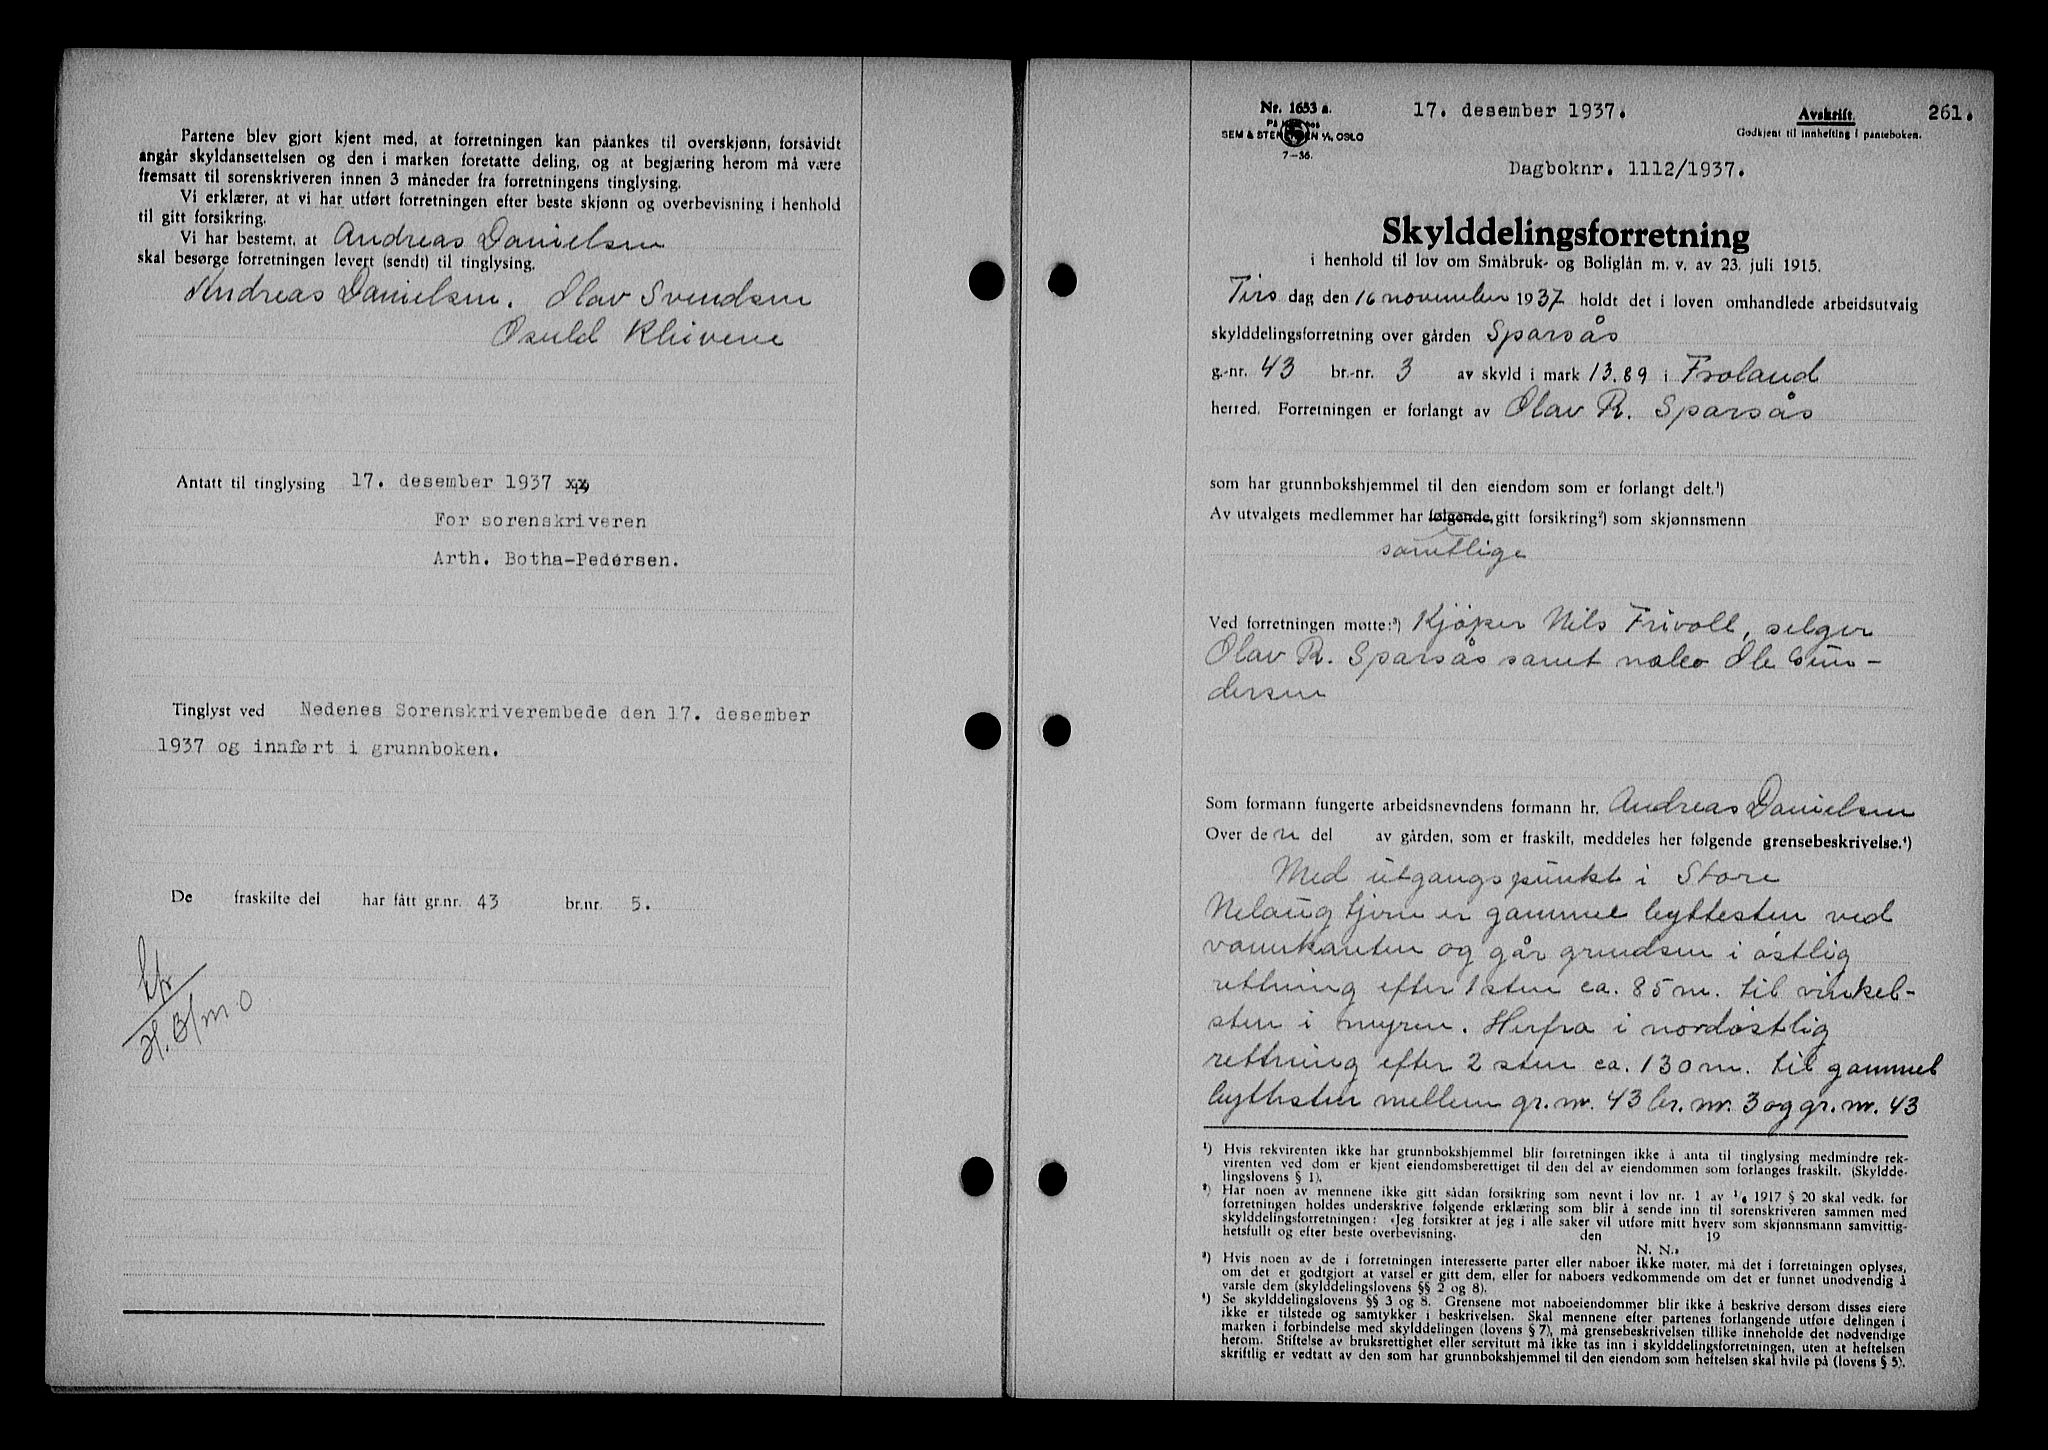 Partene blev gjort kjent med, at forretningen kan påankes til overskjønn, forsåvidt
angår skyldansettelsen og den i marken foretatte deling, og at begjæring herom må være
fremsatt til sorenskriveren innen 3 måneder fra forretningens tinglysing.
Vi erklærer, at vi har utført forretningen efter beste skjønn og overbevisning i henhold
til gitt forsikring.
Vi har bestemt, at Andreas Danielsen
skal besørge forretningen levert (sendt) til tinglysing.
Andreas Danielsen. Olav Svendsen
Osuld Klivene
Antatt til tinglysing 17. desember 1937 xx
For sorenskriveren
Arth. Botha-Pedersen.
Tinglyst ved Nedenes Sorenskriverembede den 17. desember
1937 og innført i grunnboken.
De fraskilte del har fått gr.nr. 43 br.nr. 5.
Nr. 1653 a.
SEM & STENERSEN A/S, OSLO
7-36.
17. desember 1937.
Avskrift
261.
Godkjent til innhefting i panteboken.
Dagboknr. 1112/1937.
Skylddelingsforretning
i henhold til lov om Småbruk- og Boliglån m. v. av 23. juli 1915.
Tirs dag den 16 november 1937 holdt det i loven omhandlede arbeidsutvalg
skylddelingsforretning over gården Sparsås
g.-nr. 43 br.-nr. 3 av skyld i mark 13.89 i Froland
herred. Forretningen er forlangt av Olav R. Sparsås
som har grunnbokshjemmel til den eiendom som er forlangt delt.¹)
Av utvalgets medlemmer har følgende, gitt forsikring²) som skjønnsmenn
samtlige
Ved forretningen møtte:³) Kjøper Nils Frivoll, selger
Olav R. Sparsås samt nabo Ole Gun-
dersen
Som formann fungerte arbeidsnevndens formann hr. Andreas Danielsen
Over den del av gården, som er fraskilt, meddeles her følgende grensebeskrivelse.⁴)
Med utgangspunkt i Store
Nelaug tjern er gammel byttesten ved
vannkanten og går grendsen i østlig
rettning efter 1 sten ca. 85 m. til vinkel-
sten i myren. Herfra i nordøstlig
rettning efter 2 sten ca. 130 m. til gammel
byttesten mellem gr. nr. 43 br. nr. 3 og gr. nr. 43
¹) Hvis rekvirenten ikke har grunnbokshjemmel blir forretningen ikke å anta til tinglysing medmindre rek-
virenten ved dom er kjent eiendomsberettiget til den del av eiendommen som forlanges fraskilt. (Skyldde-
lingslovens § 1).
²) Har noen av mennene ikke gitt sådan forsikring som nevnt i lov nr. 1 av 1/6 1917 § 20 skal vedk. før
forretningen holdes underskrive følgende erklæring som blir å sende inn til sorenskriveren sammen med
skylddelingsforretningen: «Jeg forsikrer at jeg i alle saker vil utføre mitt hverv som skjønnsmann samvittig-
hetsfullt og efter beste overbevisning. den 19
N. N.»
³) Hvis noen av de i forretningen interesserte parter eller naboer ikke møter, må det i forretningen oplyses,
om det er godtgjort at varsel er gitt dem, eller for naboers vedkommende om det er funnet unødvendig å
varsle dem (skylddelingslovens §§ 2 og 8).
⁴) Se skylddelingslovens §§ 3 og 8. Grensene mot naboeiendommer blir ikke å beskrive dersom disses eiere
ikke er tilstede og samtykker i beskrivelsen. Skal mennene efter partenes forlangende utføre delingen i
marken i forbindelse med skylddelingen (lovens § 7), må grensebeskrivelsen tillike inneholde det nødvendige
herom. Stiftelse av bruksrettighet eller servitutt må ikke tas inn i skylddelingsforretningen, uten at heftelsen
skriftlig er vedtatt av den som har grunnbokshjemmel til den eiendom som heftelsen skal hvile på (lovens § 5).